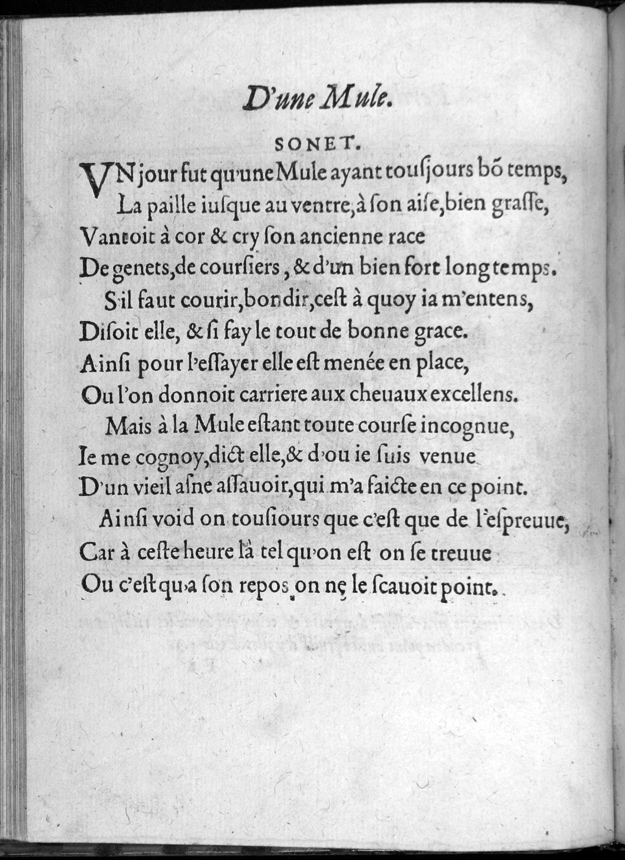 D'une Mule.
SONET.
VN jour fut qu'une Mule ayant touſjours bõ temps,
La paille iuſque au ventre, à ſon aiſe, bien graſſe,
Vantoit à cor & cry ſon ancienne race
De genets, de courſiers, & d'un bien fort long temps.
S'il faut courir, bondir, ceſt à quoy ia m'entens,
Diſoit elle, & ſi fay le tout de bonne grace.
Ainſi pour l'eſſayer elle eſt menée en place,
Ou l'on donnoit carriere aux cheuaux excellens.
Mais à la Mule eſtant toute courſe incognue,
Ie me cognoy, dict elle, & d'ou ie ſuis venue
D'un vieil aſne aſſauoir, qui m'a faicte en ce point.
Ainſi void on touſiours que c'eſt que de l'eſpreuue,
Car à ceſte heure là tel qu'on eſt on ſe treuue
Ou c'eſt qu'a ſon repos on ne le ſcauoit point.